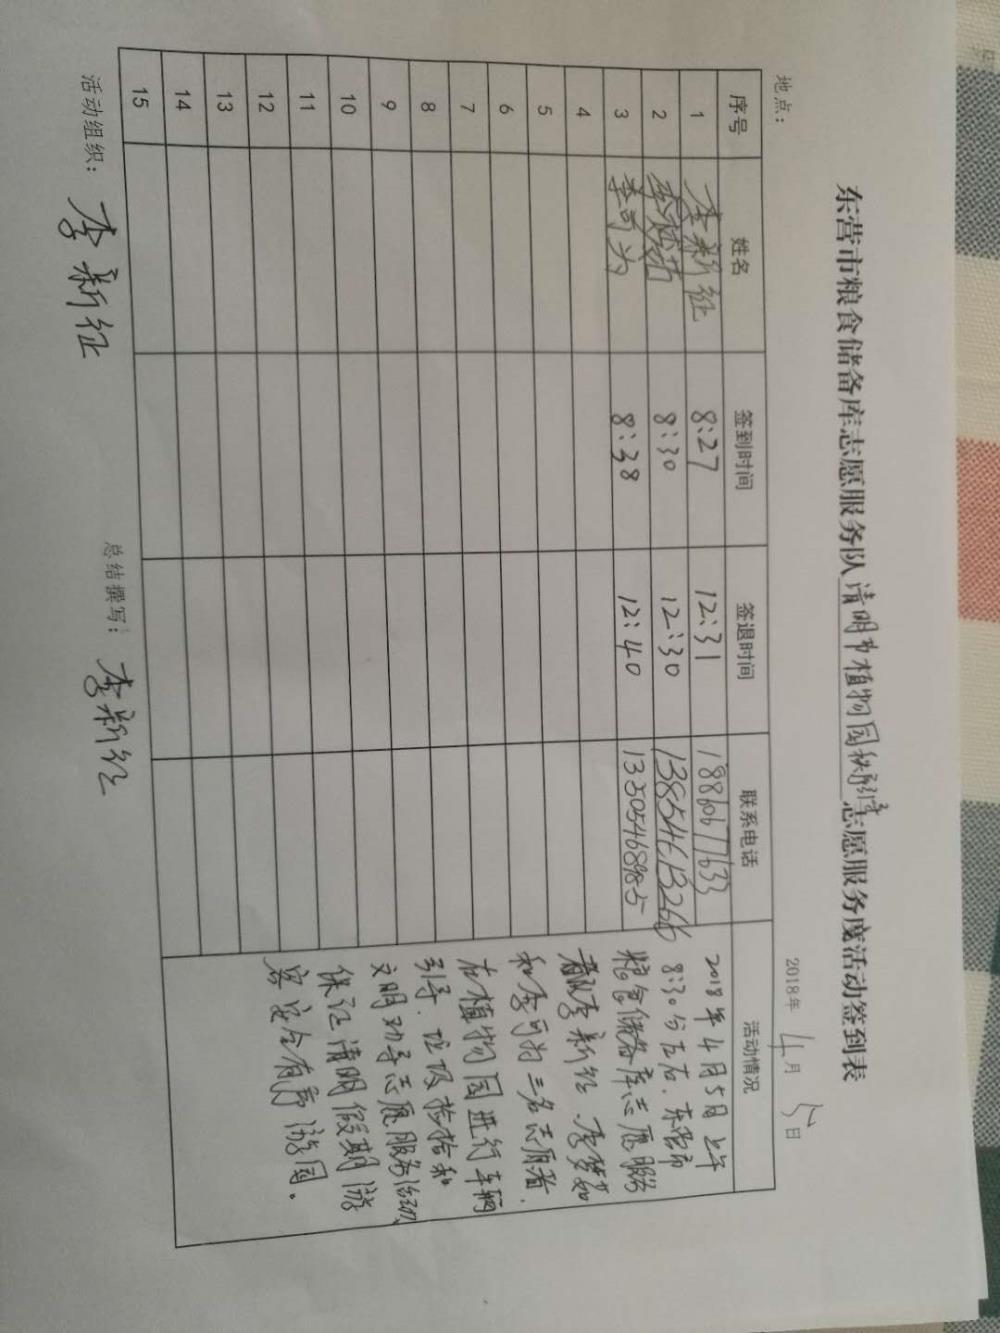 东营市粮食储备库志愿服务队清明节植物园秩序志愿服务度活动签到表
地点： 2018年 4月 5日
序号 姓名 签到时间 签退时间 联系电话 活动情况
1 李新征 8:27 12:31 18860677633
2 8:30 12:30 13854613266
3 李可为 8:38 12:40 13305468985
4
5
6
7
8
9
10
11
12
13
14
15
2018年4月5日上午
8:30分左右，东营市
粮食储备库志愿服务
李新征、李梦如
和李可为三名志愿者，
在植物园进行车辆
引导、垃圾捡拾和
文明劝导志愿服务活动，
保证清明假期游
客安全有序游园。
活动组织：李新征 总结撰写：李新征